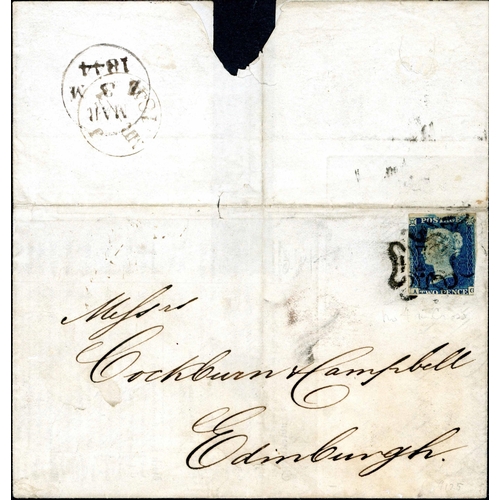 1844
MAR
POSTAGE
TWO PENCE
Messrs
Cockburn & Campbell
Edinburgh.